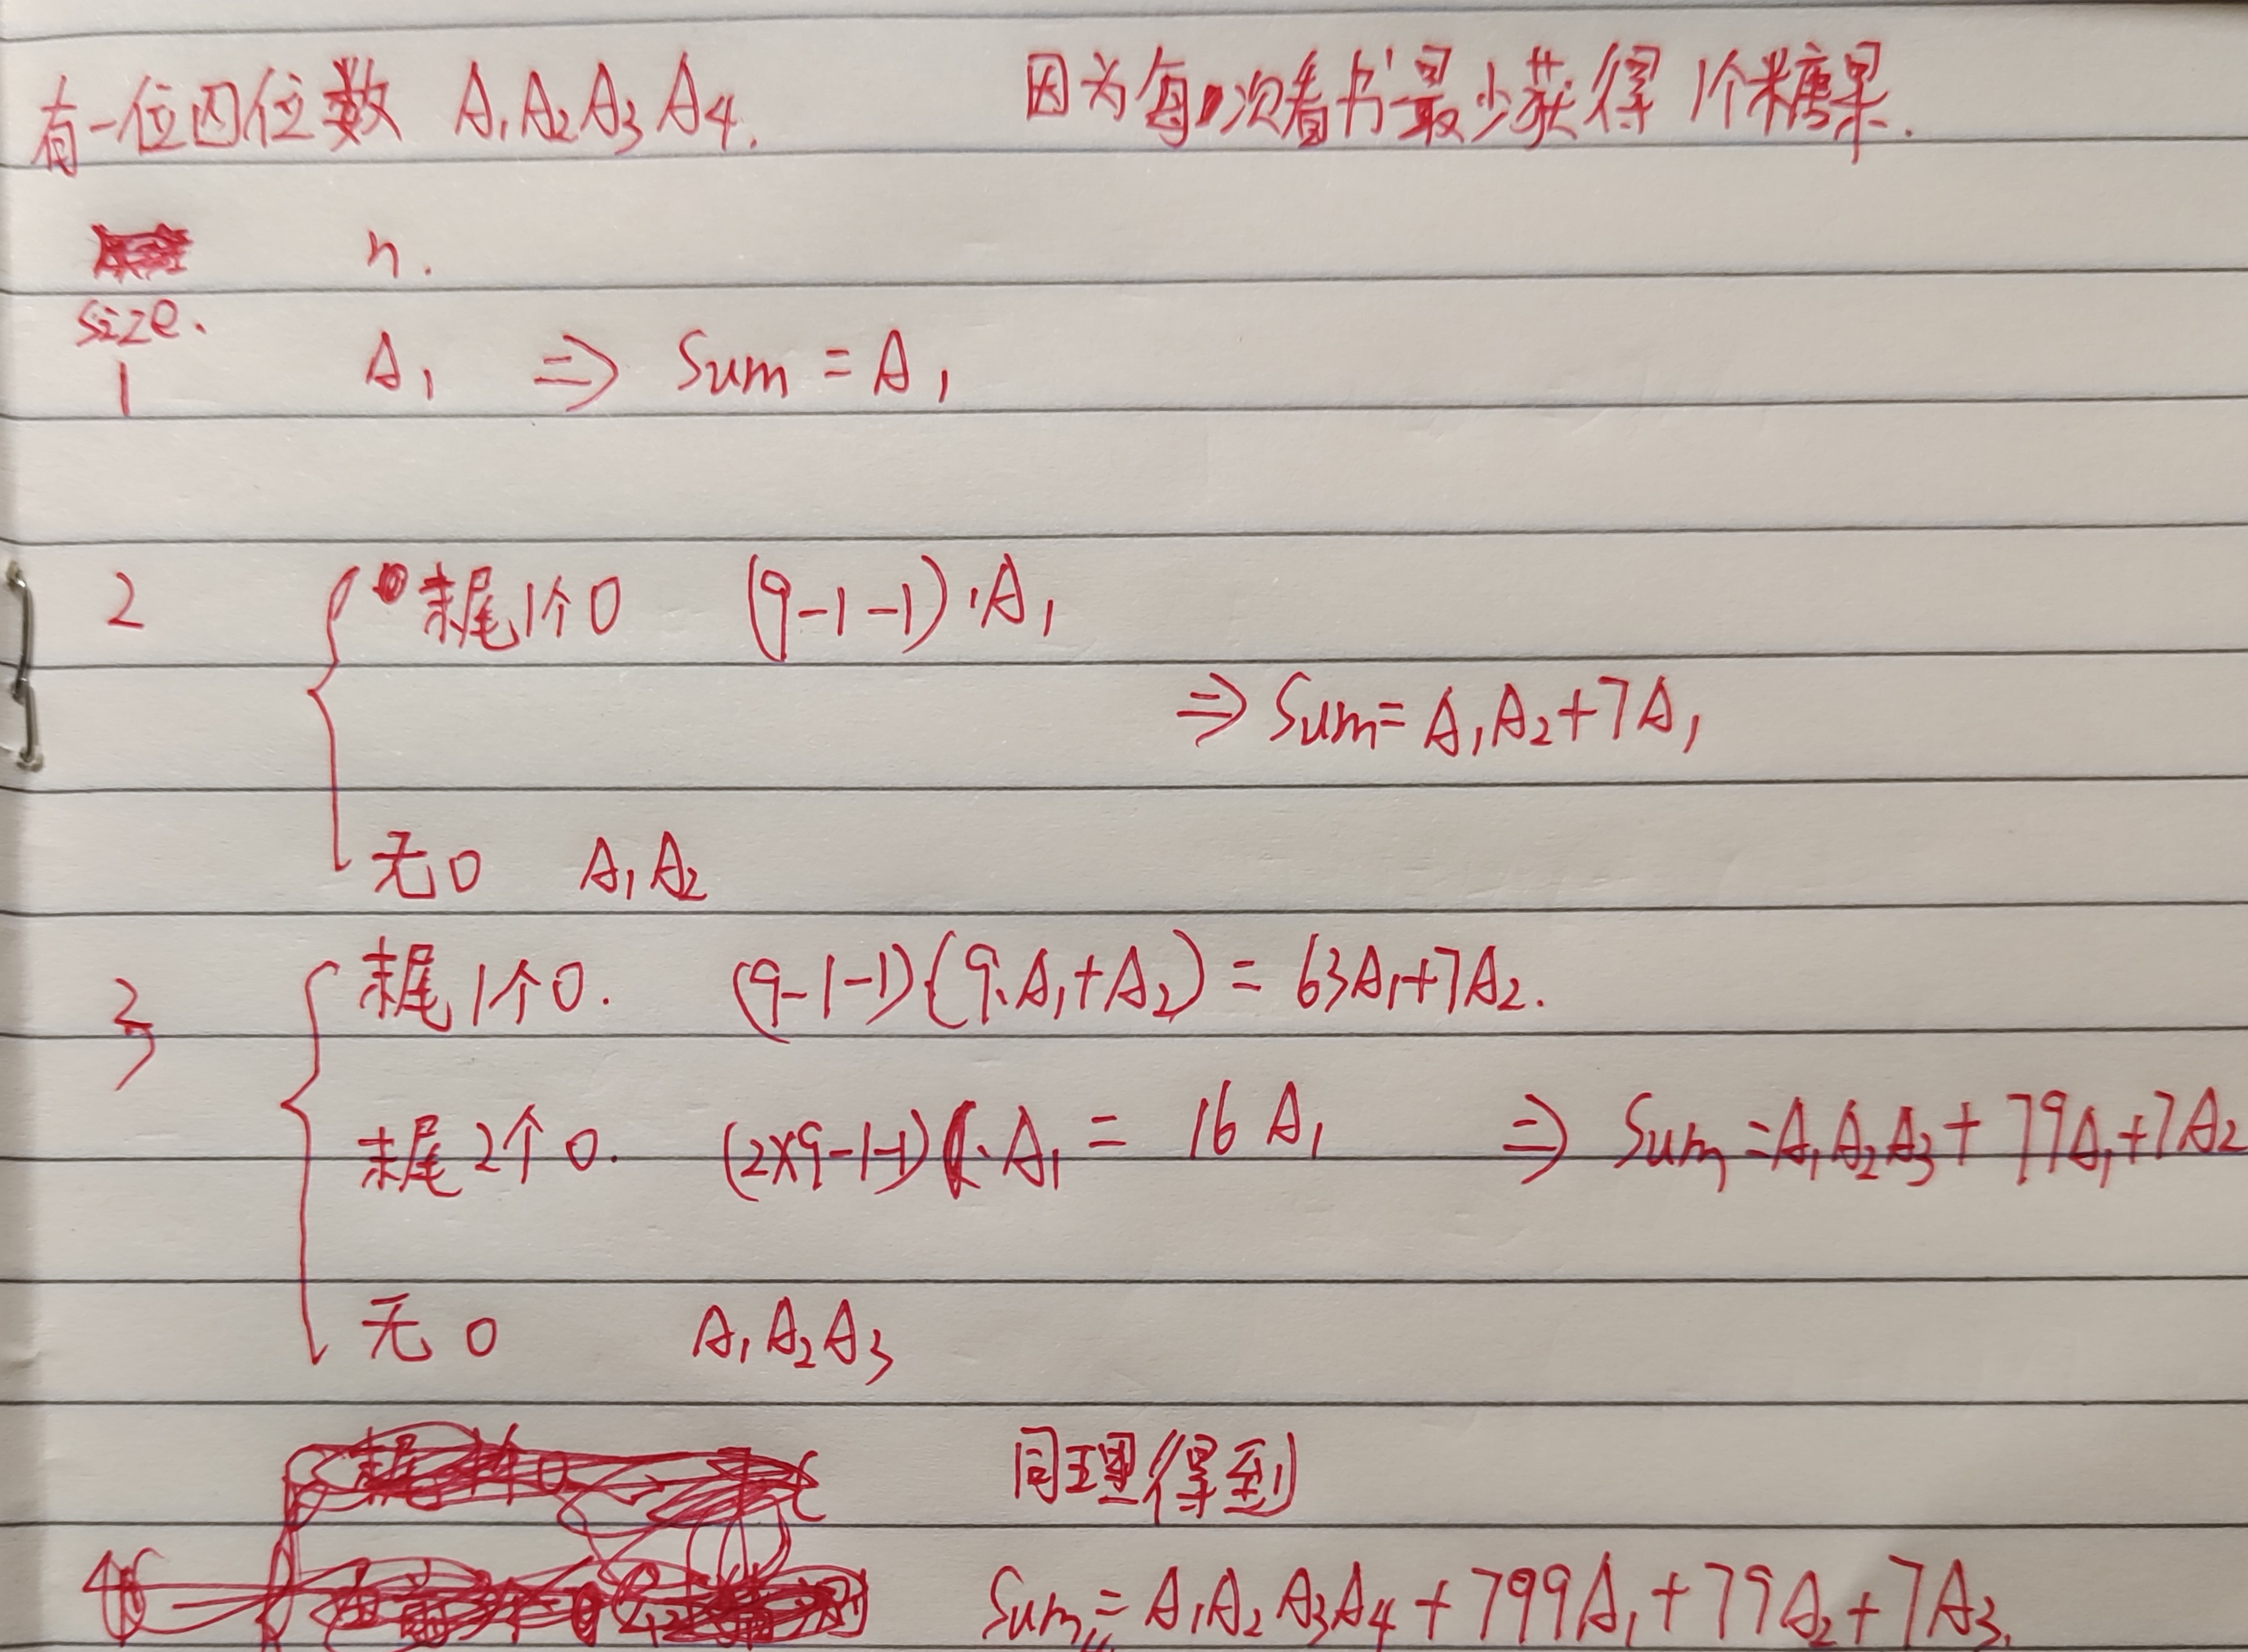 有一位四位数 A₁A₂A₃A₄. 因为每次看书最少获得1个糖果.
n.
size.
1 A₁ ⇒ Sum = A₁
2 末尾1个0 (9-1-1)·A₁
⇒ Sum = A₁A₂+7A₁
无0 A₁A₂
3 末尾1个0. (9-1-1)(9·A₁+A₂) = 63A₁+7A₂.
末尾2个0. (2×9-1-1)·A₁ = 16A₁ ⇒ Sum = A₁A₂A₃+79A₁+7A₂
无0 A₁A₂A₃
同理得到
4 Sum = A₁A₂A₃A₄+799A₁+79A₂+7A₃.